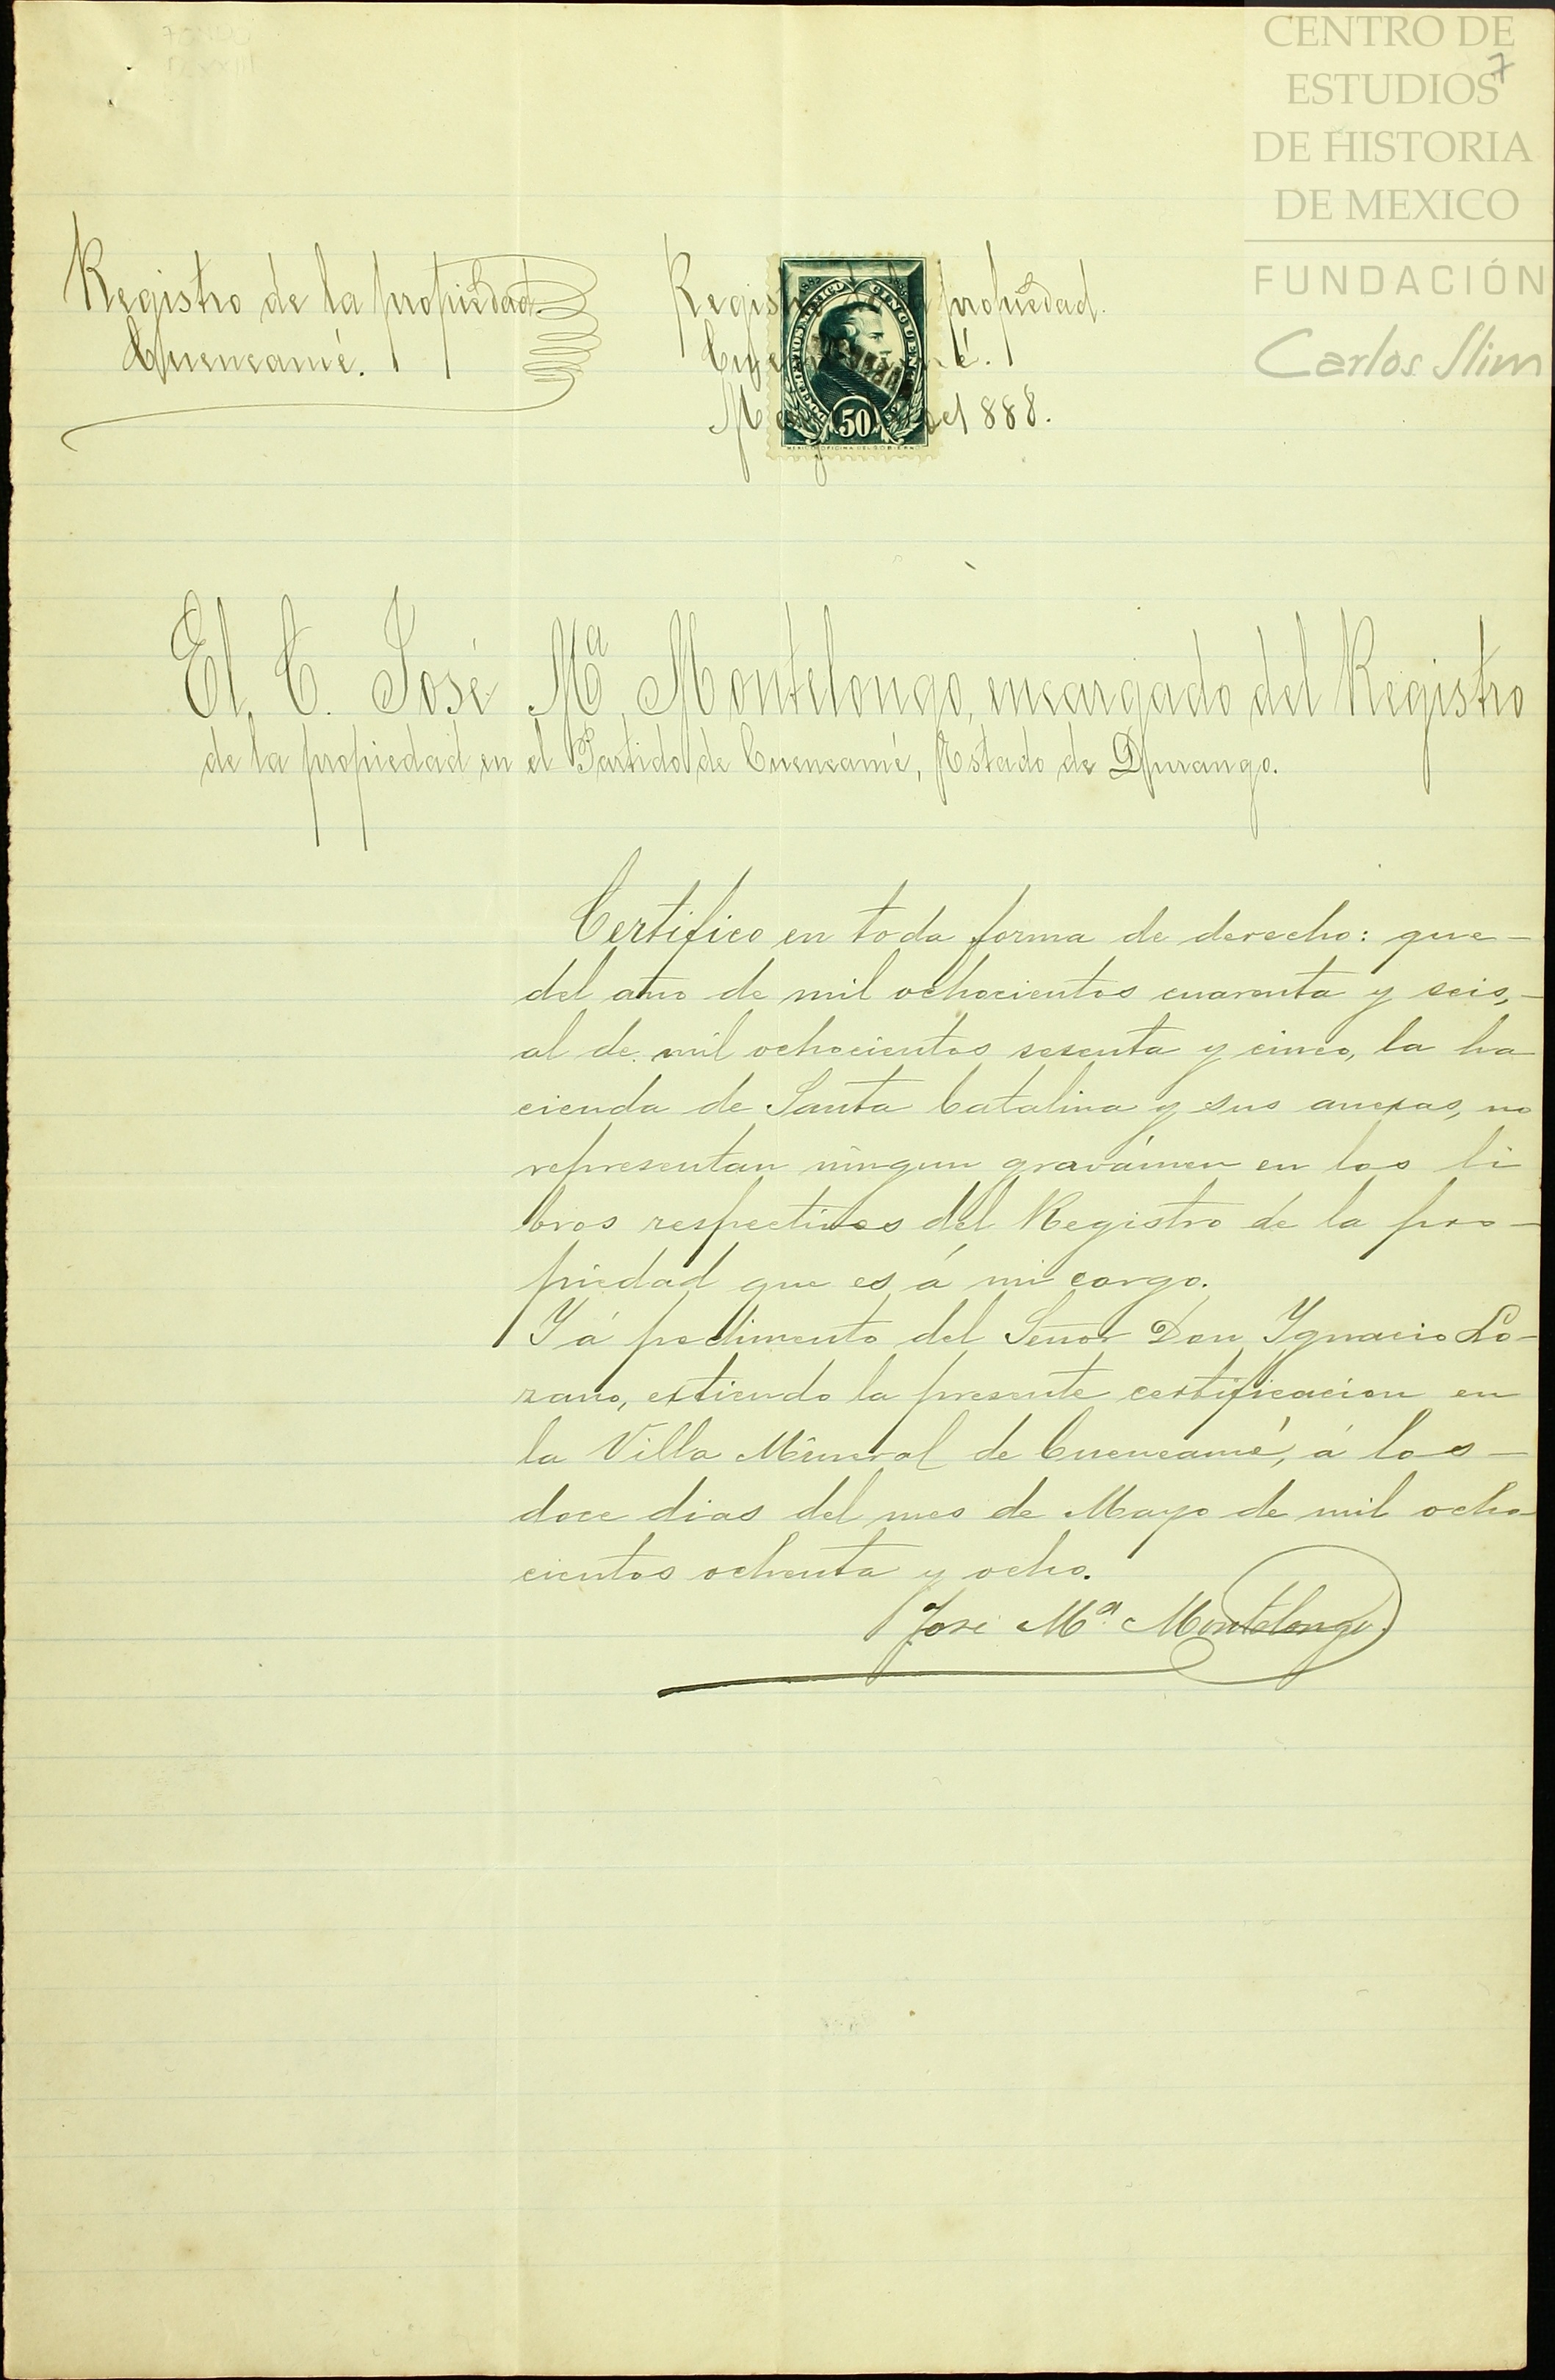 CENTRO DE
ESTUDIOS
7
DE HISTORIA
DE MEXICO
FUNDACIÓN
Carlos Slim
Registro de la propiedad.
Cuencamé.
Regis propiedad.
Cue é.
M de 1888.
50
El C. José Mª Montelongo, encargado del Registro
de la propiedad en el Partido de Cuencamé, Estado de Durango.
Certifico en toda forma de derecho: que-
del año de mil ochocientos cuarenta y seis,-
al de mil ochocientos sesenta y cinco, la ha
cienda de Santa Catalina y sus anexas, no
representan ningun gravámen en los li
bros respectivos del Registro de la pro-
piedad que es á mi cargo.
Y á pedimento del Señor Don Ygnacio Lo-
zano, extiendo la presente certificacion en
la Villa Mineral de Cuencamé, á los-
doce dias del mes de Mayo de mil ocho-
cientos ochenta y ocho.
José Mª Montelongo.